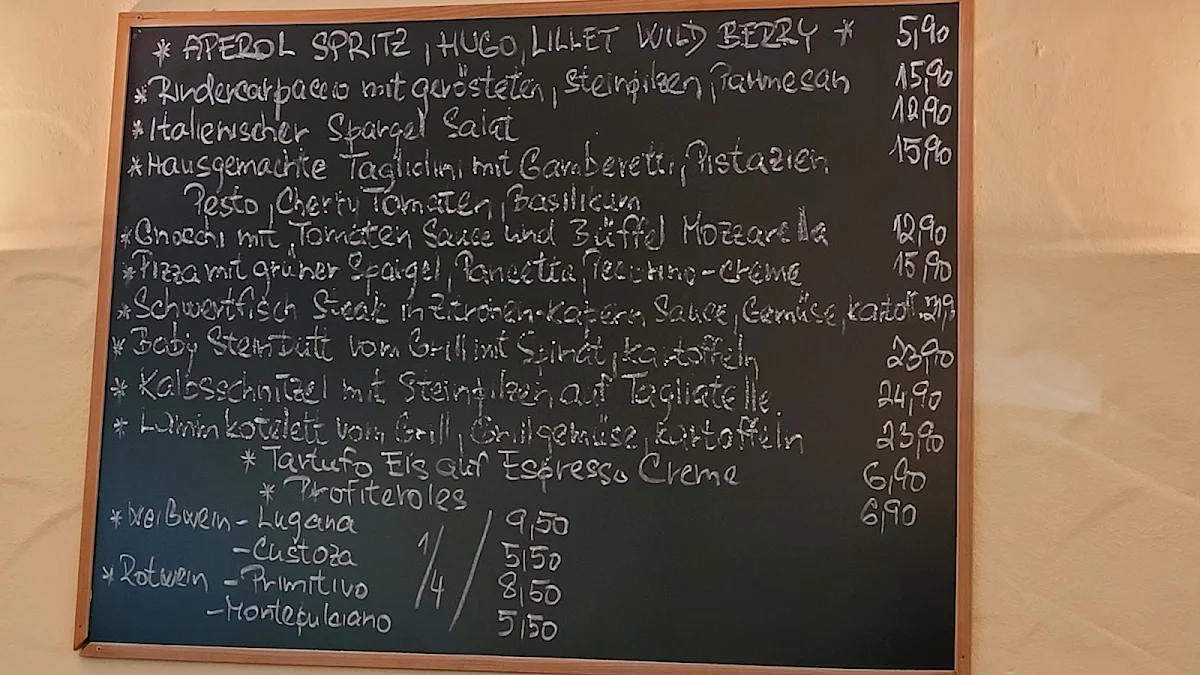 * APEROL SPRITZ, HUGO, LILLET WILD BERRY * 5,90
* Rindercarpaccio mit gerösteten, Steinpilzen, Parmesan 15,90
* Italienischer Spargel Salat 12,90
* Hausgemachte Tagliolini mit Gamberetti, Pistazien 15,90
Pesto, Cherry Tomaten, Basilikum
* Gnocchi mit, Tomaten Sauce und Büffel Mozzarella 12,90
* Pizza mit grüner Spargel, Pancetta, Pecorino-Creme 15,90
* Schwertfisch Steak in Zitronen-Kapern Sauce, Gemüse, Kartoff.
* Baby Steinbutt vom Grill mit Spinat, Kartoffeln 23,90
* Kalbsschnitzel mit Steinpilzen auf Tagliatelle. 24,90
* Lammkotelett vom Grill, Grillgemüse, Kartoffeln 23,90
* Tartufo Eis auf Espresso Creme 6,90
* Profiteroles 6,90
* Weißwein - Lugana 9,50
- Custoza 1/4 5,50
* Rotwein - Primitivo 8,50
- Montepulciano 5,50